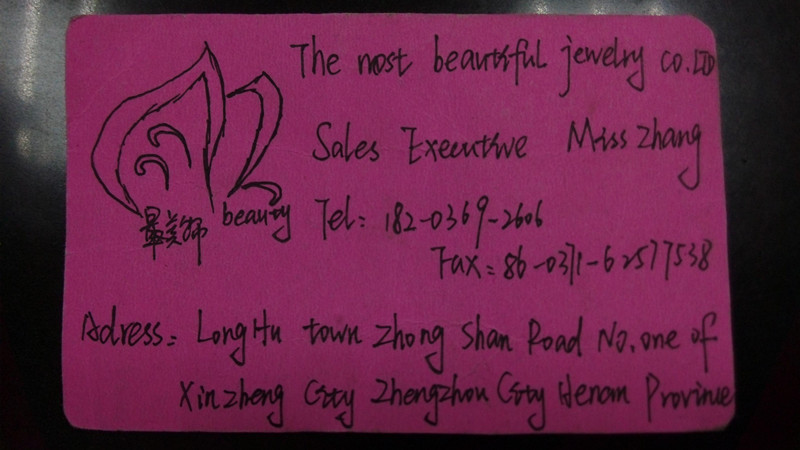 The most beautiful jewelry CO.LTD
Sales Executive Miss Zhang
最美饰 beauty
Tel: 182-0369-2606
Fax: 86-0371-62577538
Adress: LongHu town Zhong Shan Road No.one of
Xinzheng City Zhengzhou City Henan Province